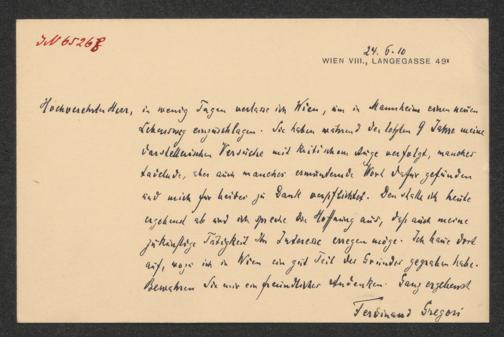 JN 65268
24.6.10
WIEN VIII., LANGEGASSE 49
Hochverehrter Herr, in wenig Tagen verlasse ich Wien, um in Mannheim einen neuen
Lebensweg einzuschlagen. Sie haben während der letzten 9 Jahre meine
darstellerischen Versuche mit kritischem Auge verfolgt, manches
tadelnde, aber auch manches ermunternde Wort dafür gefunden
und mich für beides zu Dank verpflichtet. Den statte ich heute
ergebenst ab und ich spreche die Hoffnung aus, daß auch meine
zukünftige Tätigkeit Ihr Interesse erregen möge. Ich baue dort
auf, wozu ich in Wien ein gut Teil der Gründe gegraben habe.
Bewahren Sie mir ein freundliches Andenken. Ganz ergebenst
Ferdinand Gregori